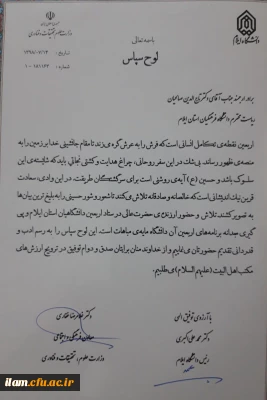 باسمه تعالی
لوح سپاس
تاریخ: ۱۳۹۸/۰۷/۲۴
شماره: ۱۰۰۸۱۱۶۲
دانشگاه ایلام
برادر ارجمند جناب آقای دکتر تاج الدین صالحیان
ریاست محترم دانشگاه فرهنگیان استان ایلام
اربعین نقطه‌ی تکامل انسانی است که فرش را به عرش گره می‌زند تا مقام جانشینی خدا بر زمین را به
منصه‌ی ظهور رساند. بی‌شک در این سفر روحانی، چراغ هدایت و کشتی نجاتی باید که شایسته‌ی این
سلوک باشد و حسین (ع) آیه‌ی روشنی است برای سرگشتگان طریقت. در این وادی، سعادت
قرین نیک اندیشانی است که خالصانه و صادقانه تلاش می‌کنند تا شور و شعور حسینی را به بلیغ ترین بیان‌ها
به تصویر کشند. تلاش و حضور ارزنده‌ی حضرت‌عالی در ستاد اربعین دانشگاهیان استان ایلام و پی
گیری مجدانه برنامه‌های اربعین آن دانشگاه مایه‌ی مباهات است. این لوح سپاس را به رسم ادب و
قدردانی تقدیم حضورتان می‌نماییم و از خداوند منان برایتان صدق و دوام توفیق در ترویج ارزش‌های
مکتب اهل البیت (علیهم السلام) می‌طلبیم.
با آرزوی توفیق الهی
دکتر محمد علی اکبری
رئیس دانشگاه ایلام
دکتر غلامرضا غفاری
معاون فرهنگی و اجتماعی
وزارت علوم، تحقیقات و فناوری
ilam.cfu.ac.ir